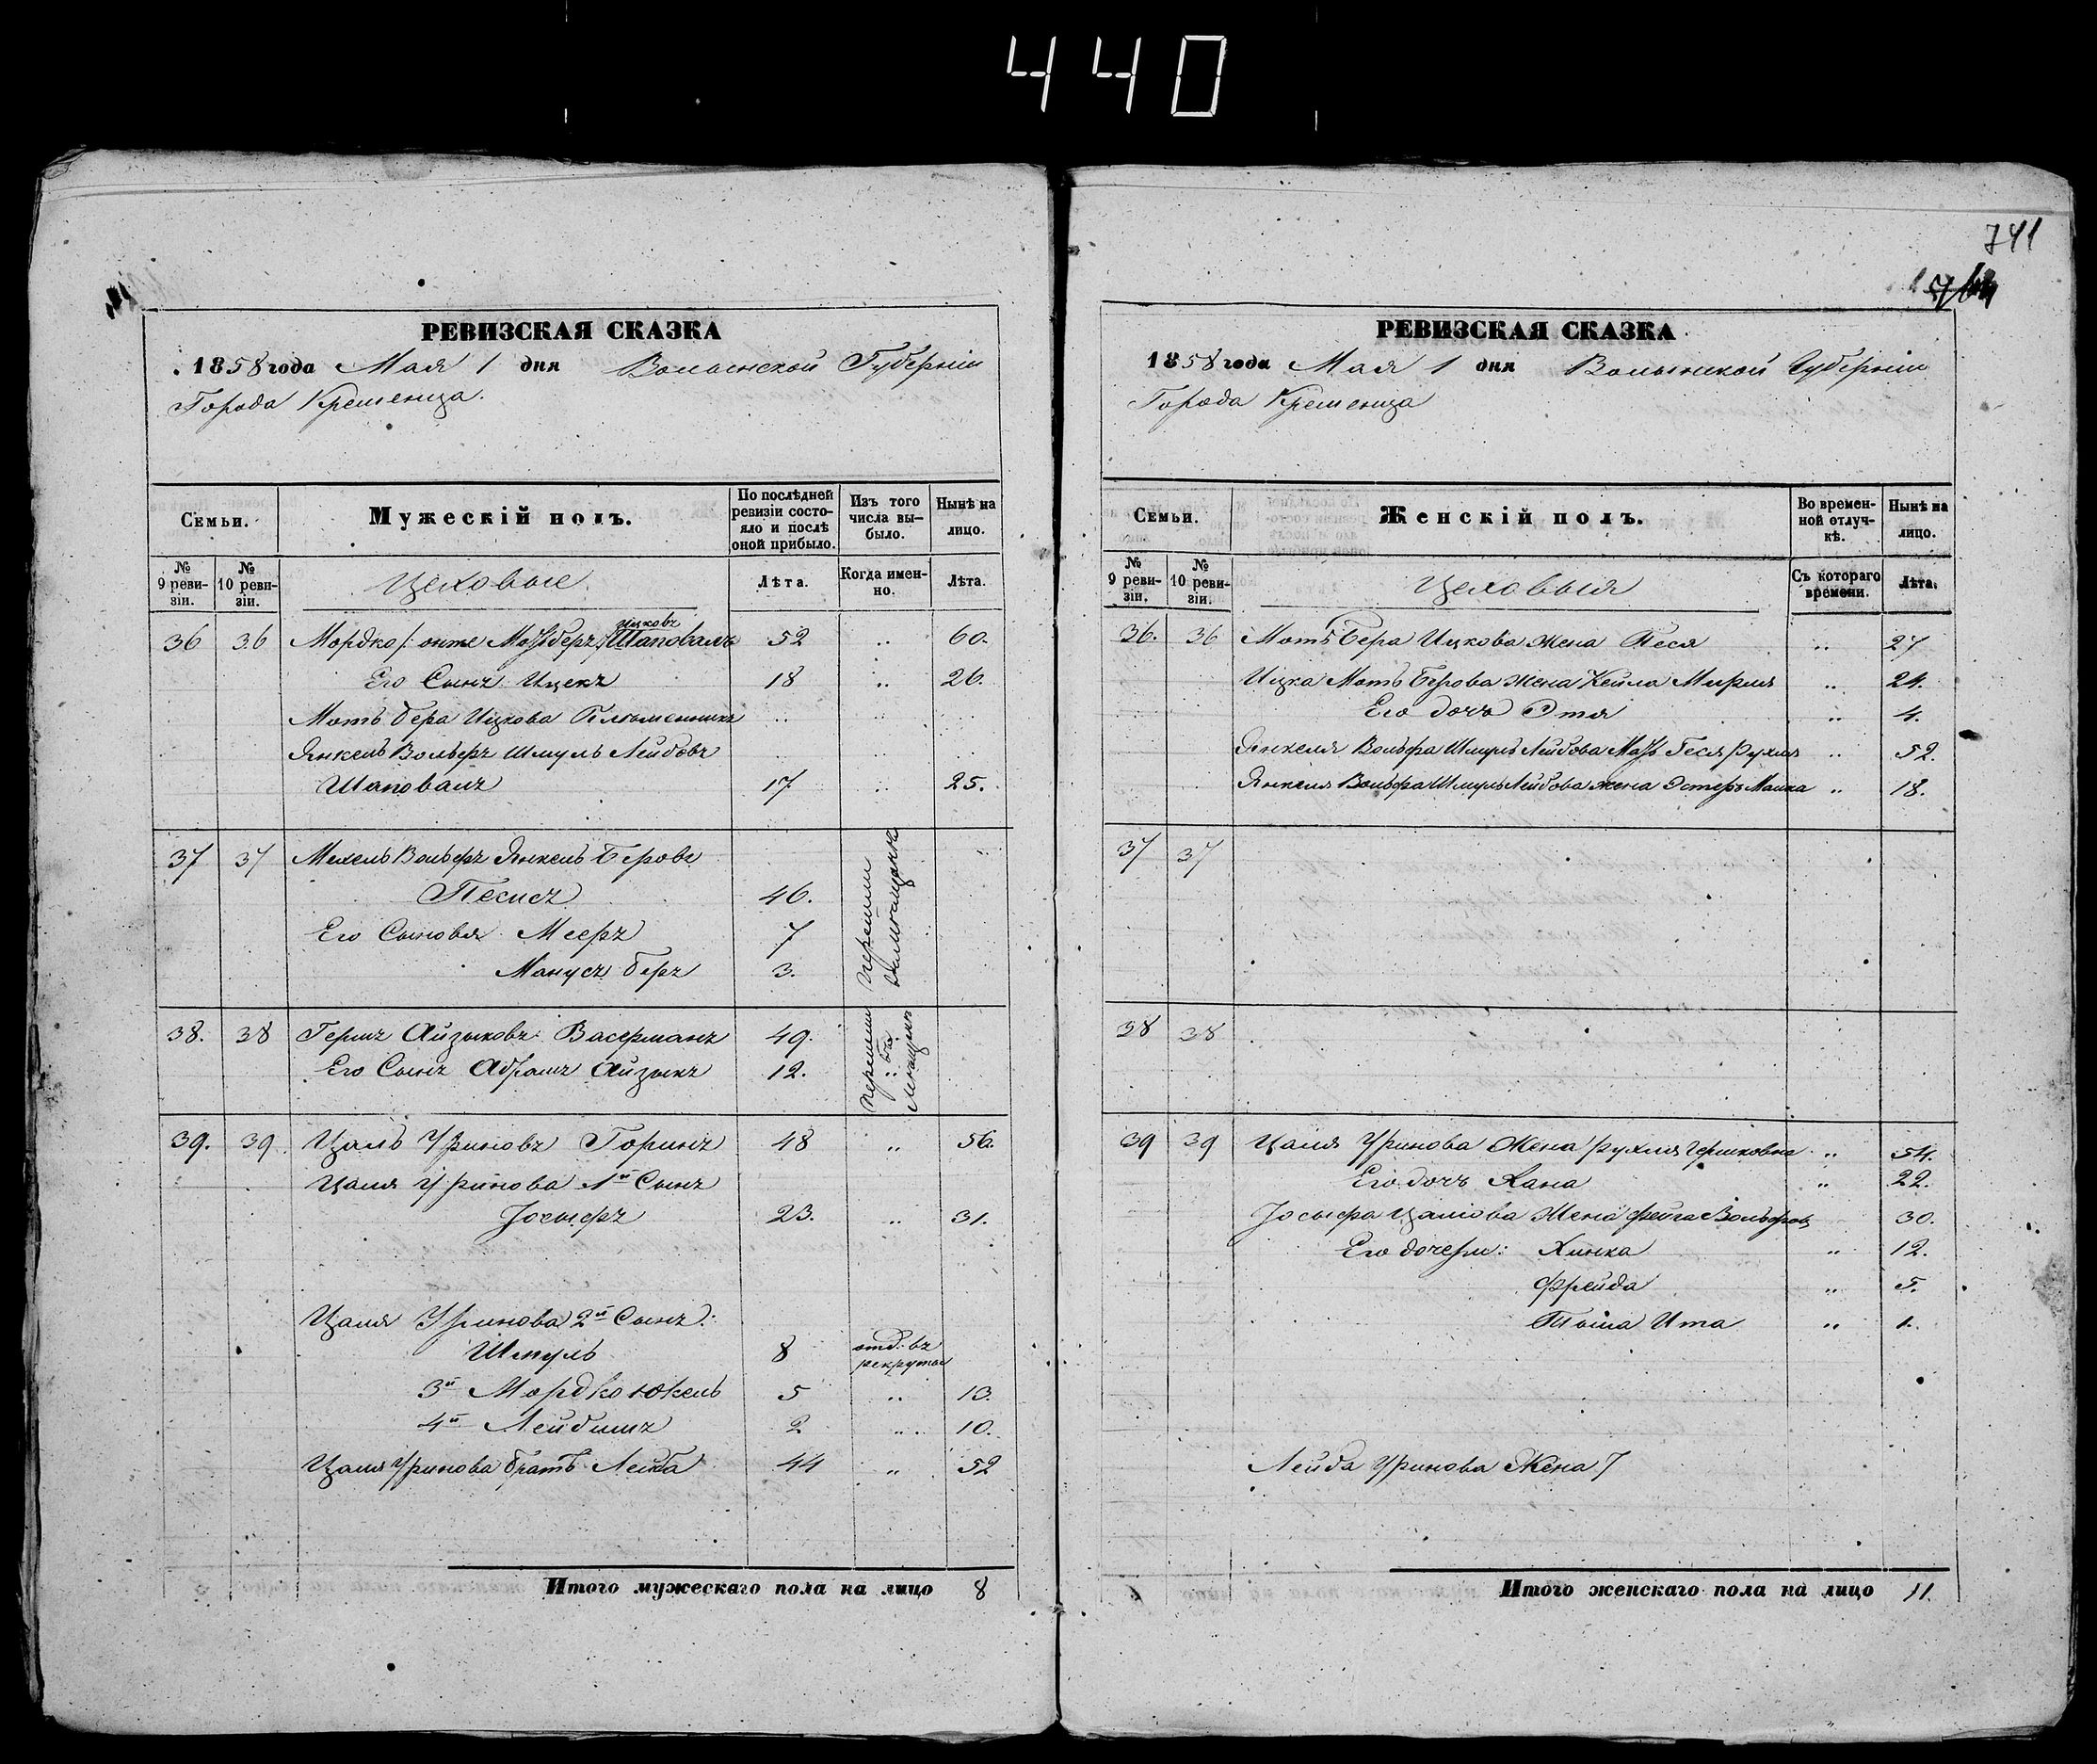 440
741
РЕВИЗСКАЯ СКАЗКА
1858 года Мая 1 дня Волынской Губерніи
Города Кременца.
Семьи.
Мужескій полъ.
По послѣдней ревизіи состо-
яло и послѣ
оной прибыло.
Изъ того
числа вы-
было.
Нынѣ на
лицо.
№ 9 реви-
зіи.
№ 10 реви-
зіи.
Цеховые
Лѣта.
Когда имен-
но.
Лѣта.
Ицковъ
36 36 Мордко /: онже Мот Беръ :/ Шаповалъ 52 „ 60.
Его Сынъ Ицекъ 18 „ 26.
Моть Бера Ицкова Племенникъ
Янкель Вольфъ Шмуль Лейбовъ
Шаповалъ 17 „ 25.
37 37 Мехель Вольфъ Янкель Беровъ
Песисъ 46.
Его Сыновья Мееръ 7
Манусъ Беръ 3.
перешли
38. 38 Гершъ Айзыковъ Васерманъ 49.
Его Сынъ Абрамъ Айзыкъ 12.
перешли въ
39. 39. Цаль Уриновъ Горинъ 48 „ 56.
Цаля Уринова 1й Сынъ
Іосыфъ 23. „ 31.
Цаля Уринова 2й Сынъ:
Шмуль 8 отд: въ
рекруты
3й Мордко Юкель 5 „ 13.
4й Лейбишъ 2 „ 10.
Цаля Уринова братъ Лейба 44 „ 52
Итого мужескаго пола на лицо 8
РЕВИЗСКАЯ СКАЗКА
1858 года Мая 1 дня Волынской Губерніи
Города Кременца
Семьи.
Женскій полъ.
Во времен-
ной отлуч-
кѣ.
Нынѣ на
лицо.
№ 9 реви-
зіи.
№ 10 реви-
зіи.
Цеховыя
Съ котораго
времени.
Лѣта.
36. 36 Моть Бера Ицкова жена Песя „ 27
Ицка Моть Берова жена Кейла Мирля „ 24.
Его дочь Этя „ 4.
Янкеля Вольфа Шмуль Лейбова Мать Геся Рухля „ 52.
Янкеля Вольфа Шмуль Лейбова жена Эстеръ Малка „ 18.
37 37
38 38
39 39 Цаля Уринова Жена Рухля Гершковна „ 54.
Его дочь Хана „ 22.
Іосыфа Цалова Жена Фейга Вольфов 30.
Его дочери: Хинка „ 12.
Фрейда „ 5.
Ита „ 1.
Лейба Уринова Жена
Итого женскаго пола на лицо 11.